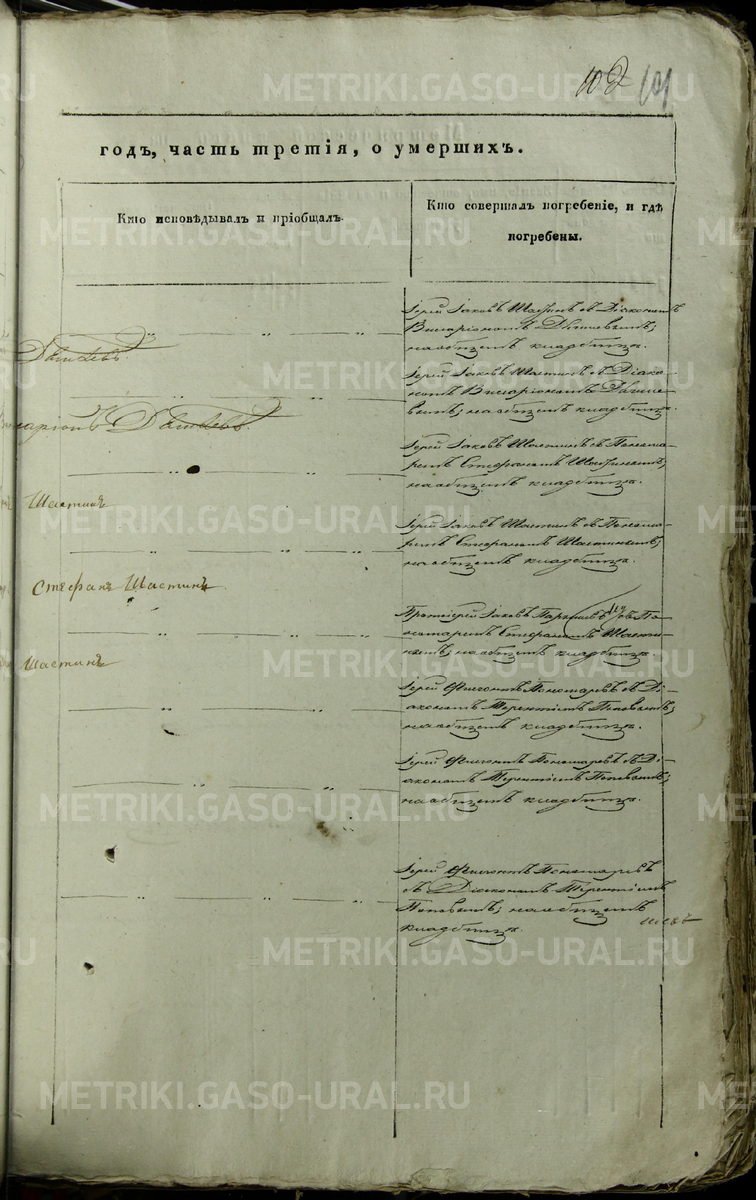 102 101
годъ, часть третія, о умершихъ.
Кто исповѣдывалъ и пріобщалъ.
Кто совершалъ погребеніе, и гдѣ
погребены.
Іерей Іаковъ Шастинъ съ Діакономъ
Виларіономъ
на общемъ кладбищѣ.
Іерей Іаковъ Шастинъ съ Діако-
номъ Виларіономъ
на общемъ кладбищѣ.
Іерей Іаковъ Шастинъ съ Понома-
ремъ Стефаномъ Шастинымъ,
на общемъ кладбищѣ.
Шастинъ
Іерей Іаковъ Шастинъ съ Понома-
ремъ Стефаномъ Шастинымъ,
на общемъ кладбищѣ.
Стефанъ Шастинъ
Протоіерей Іаковъ съ По-
номаремъ Стефаномъ Шасти-
нымъ, на общемъ кладбищѣ.
Шастинъ
Іерей Флегонтъ Пономаревъ съ Ді-
акономъ Терентіемъ Поповымъ,
на общемъ кладбищѣ.
Іерей Флегонтъ Пономаревъ съ Ді-
акономъ Терентіемъ Поповымъ,
на общемъ кладбищѣ.
Іерей Флегонтъ Пономаревъ
съ Діакономъ Терентіемъ
Поповымъ, на общемъ
кладбищѣ.
METRIKI.GASO-URAL.RU